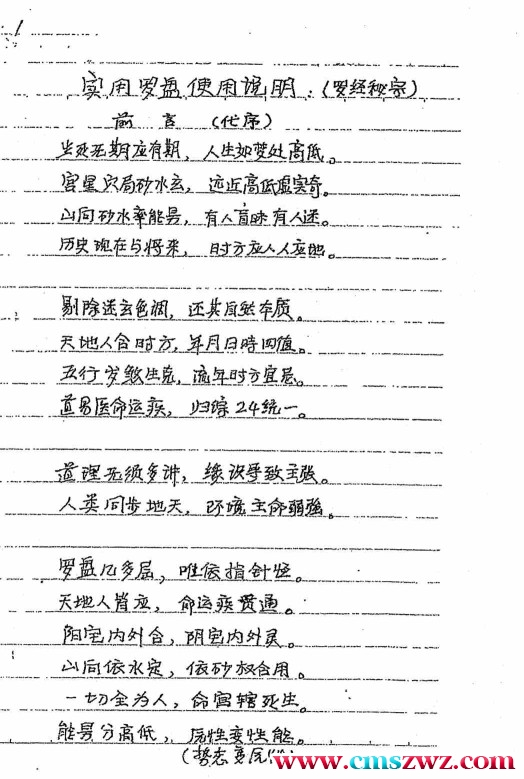 1
实用罗盘使用说明：(罗经秘宗)
前言 (代序)
生死无期应有期，人生如梦处高低。
宫星穴局砂水玄，远近高低虚实奇。
山向砂水率能量，有人盲昧有人迷。
历史现在与将来，时方应人人应地。
剔除迷玄色调，还其自然本质。
天地人合时方，年月日時四值。
五行岁煞生克，流年时方宜忌。
道易医命运疾，归综24统一。
道理无须多讲，缘识导致主张。
人类同步地天，环境主命弱強。
罗盘几多层，唯依指针恒。
天地人皆应，命运疾贯通。
阳宅内外合，阴宅内外灵。
山向依水定，依砂权合用。
一切全为人，命宫辖死生。
能量分高低，属性变性能。
(势态变
www.cmszwz.com